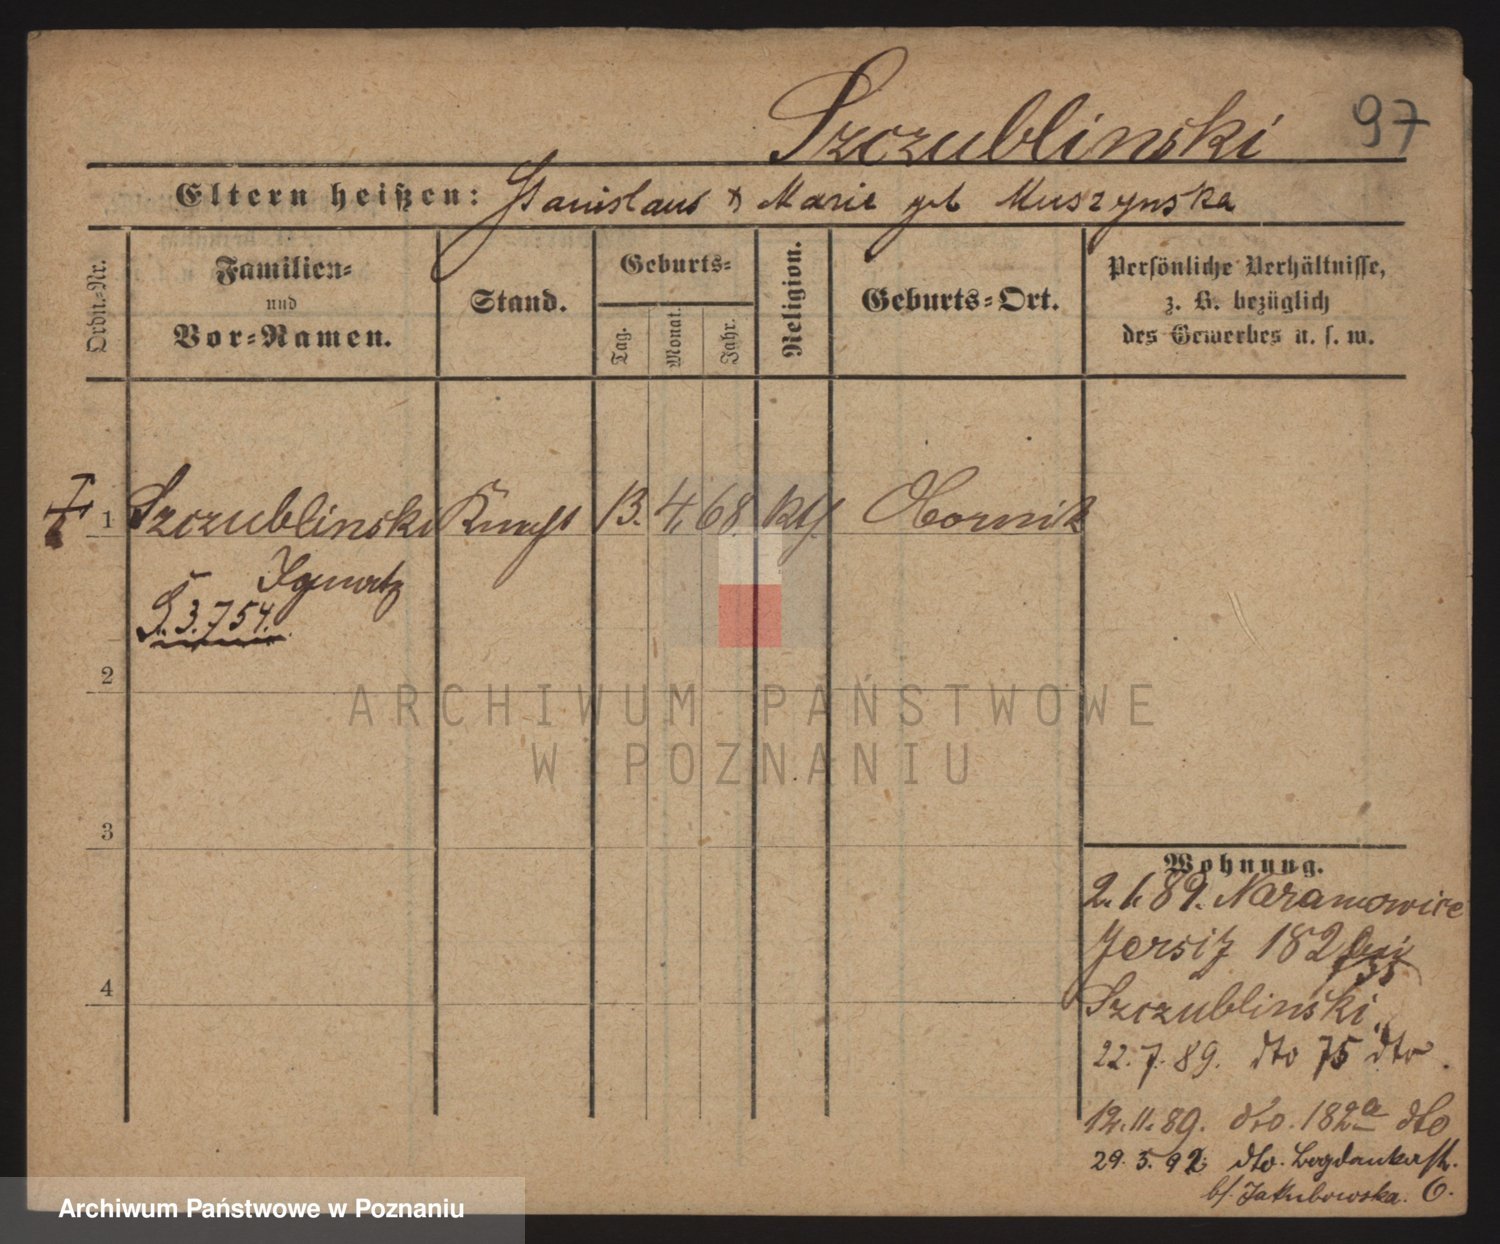 Szczublinski 97
Eltern heißen: Stanislaus & Marie geb Muszynska
Ordn-Nr.
Familien-
und
Vor-Namen.
Stand.
Geburts-
Tag.
Monat.
Jahr.
Religion.
Geburts-Ort.
Persönliche Verhältnisse,
z. B. bezüglich
des Gewerbes u. s. w.
1 Szczublinski Knecht 13. 4. 68. kth. Obornik
Ignatz
3.754.
2
3
4
ARCHIWUM PAŃSTWOWE
W POZNANIU
Wohnung.
2. 1. 89. Naramowice
Jersitz 182 bei
Szczublinski
22. 7. 89. dto 75 dto
12. 11. 89. dto. 182a dto
29. 5. 92 dto. Bogdankastr.
b/. Jakubowska. 6.
Archiwum Państwowe w Poznaniu